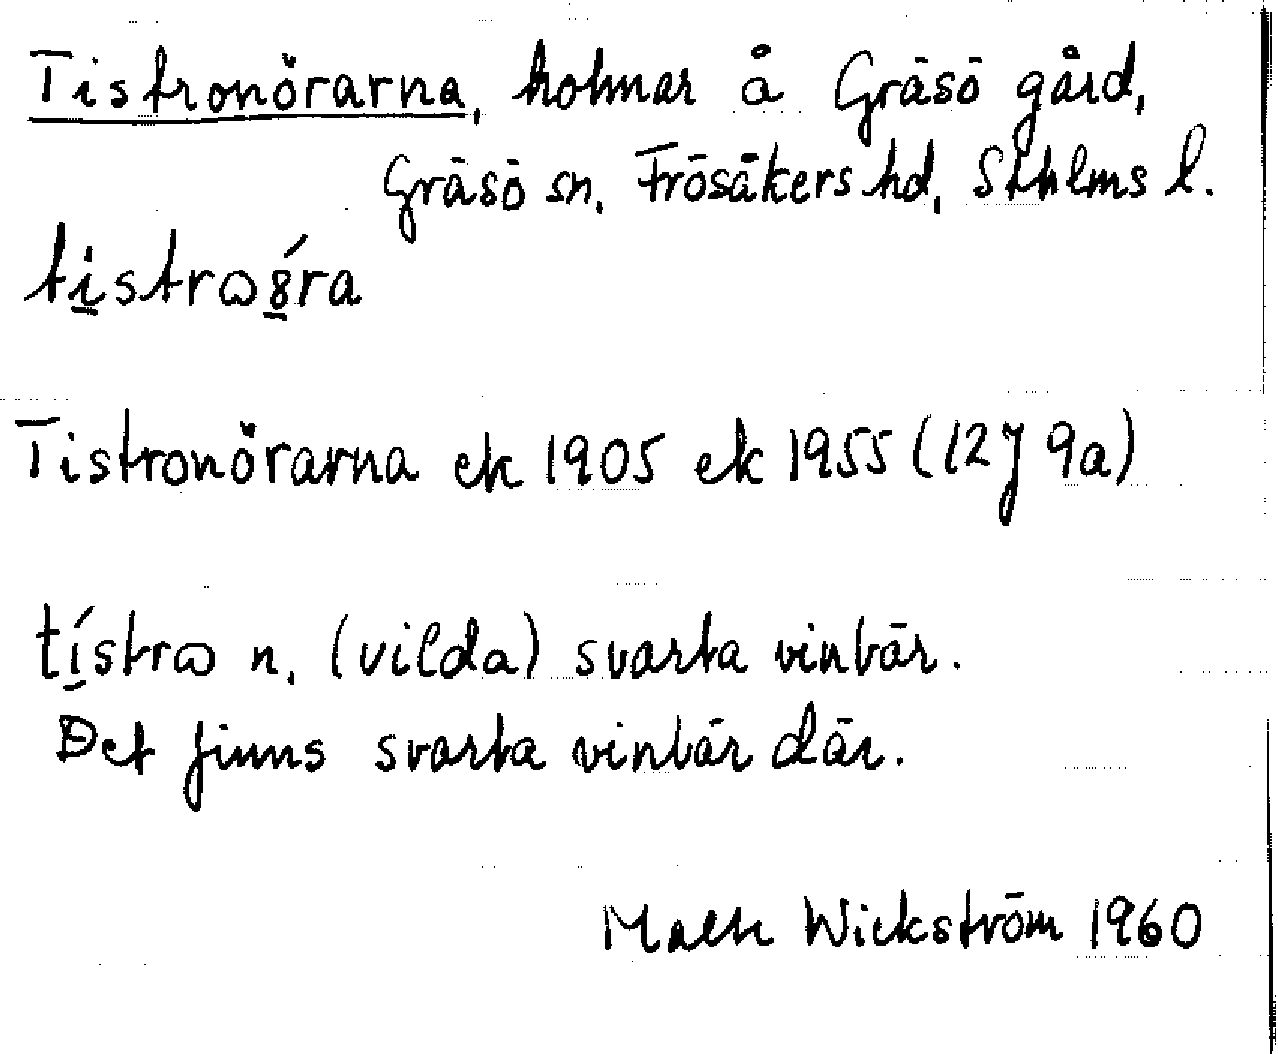 Tistronörarna, holmar å Gräsö gård,
Gräsö sn, Frösåkers hd, Sthlms l.
ti̱strɷ8̱́ra
Tistronörarna ek 1905 ek 1955 (12J 9a)
tí̱strɷ n, (vilda) svarta vinbär.
Det finns svarta vinbär där.
Wickström 1960